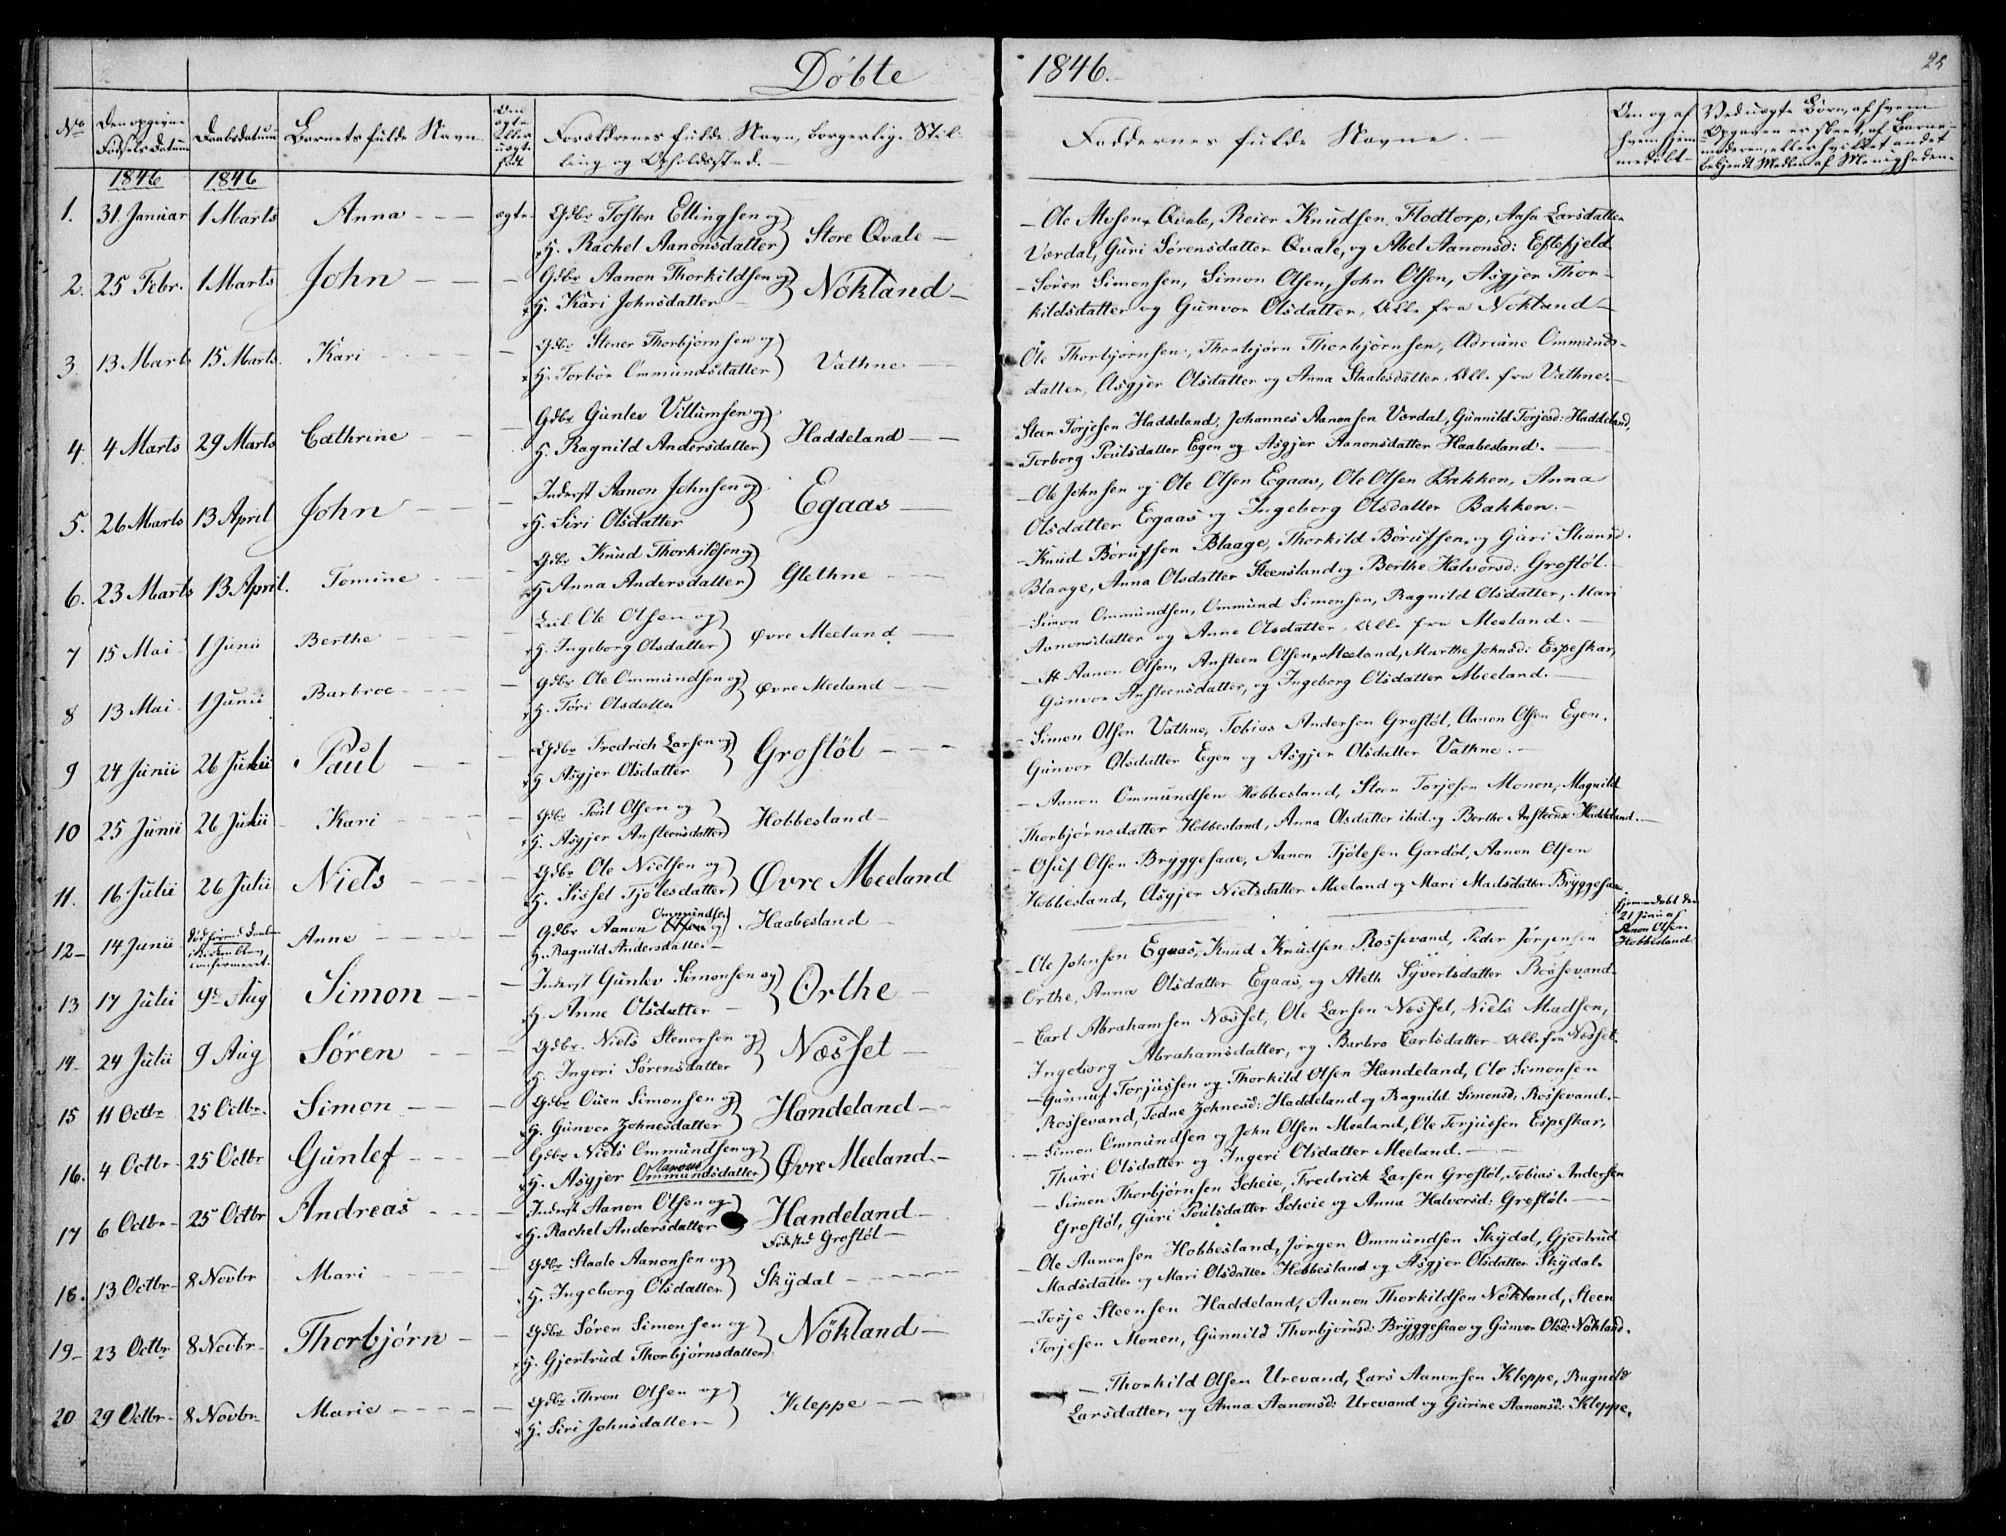 Döbte 1846.
25
No Den opgivne Fødsels Datum Daabsdatum Barnets fulde Navn Om ægte eller uægte født Forældrenes fulde Navn, borgerlige Stilling og Opholdssted. Faddernes fulde Navne Om og af hvem hjemmedøbt Ved uægte Børn, af hvem Opgaven er skeet, af Barnemoderen, eller hvilket andet bekjendt Medlem af Menigheden
1846 1846
1. 31 Januar 1 Marts Anna ægte Gdbr Tosten Ellingsen og
H. Rachel Aanonsdatter Store Qvale
Ole Alvsen Qvale, Reier Knudsen Flodtorp, Aasa Larsdatter
Værdal, Guri Sørensdatter Qvale, og Abel Aanonsd: Eftefjeld
2. 25 Febr. 1 Marts John Gdbr Aanon Thorkildsen og
H. Kari Johnsdatter Nökland
Søren Simonsen, Simon Olsen, John Olsen, Asgjer Thor-
kildsdatter og Gunvor Olsdatter, Alle fra Nökland
3. 13 Marts 15 Marts. Kari Gdbr Stener Thorbjørnsen og
H. Torbør Ommundsdatter Vathne
Ole Thorbjørnsen, Thorbjørn Thorbjørnsen, Adriane Ommunds-
datter, Asgjer Olsdatter og Anna Staalesdatter, Alle fra Vathne.
4. 4 Marts 29 Marts Cathrine Gdbr Gunlev Villumsen og
H. Ragnild Andersdatter Haddeland
Steen Torjesen Haddeland, Johannes Aanonsen Værdal, Gunnild Torjesd: Haddeland,
Torborg Poulsdatter Egen og Asgjer Aanonsdatter Haabesland.
5. 26 Marts 13 April John Inderst Aanon Johnsen og
H. Siri Olsdatter Egaas
Ole Johnsen og Ole Olsen Egaas, Ole Olsen Bakken, Anna
Olsdatter Egaas og Ingeborg Olsdatter Bakken.
6. 23 Marts 13 April. Tomine Gdbr Knud Thorkildsen og
H Anna Andersdatter Glethne
Knud Børufsen Blaage, Thorkild Børufsen og Guri
Blaage, Anna Olsdatter Steensland og Berthe Halvorsd: Grostøl.
7 15 Mai 1 Junii Berthe Ole Olsen og
H. Ingeborg Olsdatter Øvre Meeland
Simon Ommundsen, Ommund Simonsen, Ragnild Olsdatter, Mari
Aanonsdatter og Anne Olsdatter, Alle fra Meeland.
8 13 Mai 1 Junii Barbroe Gdbr Ole Ommundsen og
H. Tøri Olsdatter Øvre Meeland
Aanon Olsen, Ansteen Olsen Meeland, Marthe Johnsd: Espeskar,
Gunvor Ansteensdatter, og Ingeborg Olsdatter Meeland.
9 24 Junii 26 Julii Paul Gdbr Fredrich Larsen og
H Asgjer Olsdatter Grostøl
Simon Olsen Vathne, Tobias Andersen Grostøl, Aanon Olsen Egen.
Gunvor Olsdatter Egen og Asgjer Olsdatter Vathne.
10 25 Junii 26 Julii Kari Gdbr Poul Olsen og
H. Asgjer Ansteensdatter Hobbesland
Aanon Ommundsen Hobbesland, Steen Torjesen Monen, Magnild
Thorbjørnsdatter Hobbesland, Anna Olsdatter ibid. og Berthe Ansteensd: Haddeland.
11. 16 Julii 26 Julii Niels Gdbr Ole Nielsen og
H. Sissel Tjölesdatter Øvre Meeland
Osuf Olsen Bryggesaae, Aanon Tjölesen Gardöl, Aanon Olsen
Hobbesland, Asgjer Nielsdatter Meeland og Mari Madsdatter Bryggesaa
12 14 Junii Anne Gdbr Aanon Ommundsen og
H. Ragnild Andersdatter Haabesland
Hjemmedøbt den
21 Junii af
Aanon Olsen
Hobbesland
13 17 Julii 9de Aug Simon Inderst Gunlev Simonsen og
H. Anne Olsdatter Orthe
Ole Johnsen Egaas, Knud Knudsen Rossevand, Peder Jørgensen
Orthe, Anna Olsdatter Egaas, og Aleth Syvertsdatter Rossevand
14 24 Julii 9 Aug Søren Gdbr. Niels Stenersen og
H. Ingeri Sørensdatter Næsset
Carl Abrahamsen Næsset, Ole Larsen Næsset, Niels Madsen,
Ingeborg Abrahamsdatter, og Barbro Carlsdatter Alle fra Næsset.
15 11 Octbr 25 Octbr. Simon Gdbr Ouen Simonsen og
H. Gunvor Zohnesdatter Handeland
Gunnuf Torjussen og Thorkild Olsen Handeland, Ole Simonsen
Rossevand, Todne Zohnesd: Haddeland og Ragnild Simonsd. Rossevand.
16. 4 Octbr 25 Octbr Gunlef Gdbr Niels Ommundsen og
H. Asgjer Aanons Ommundsdatter Øvre Meeland.
Simon Ommundsen og John Olsen Meeland, Ole Torjussen Espeskar,
Thuri Olsdatter og Ingeri Olsdatter Meeland.
17 6 Octbr 25 Octbr Andreas Inderst Aanon Olsen og
H. Rachel Andersdatter Handeland
Fødested Grostøl
Simon Thorbjørnsen Scheie, Fredrick Larsen Grostøl, Tobias Andersen
Grostøl, Guri Poulsdatter Scheie og Anna Halvorsd: Grostøl.
18. 13 Octbr 8 Novbr Mari Gdbr Staale Aanonsen og
H. Ingeborg Olsdatter Skydal
Ole Aanonsen Hobbesland, Jørgen Ommundsen Skydal, Gjertrud
Madsdatter og Mari Olsdatter Hobbesland og Asgjer Olsdatter Skydal.
19 23 Octbr 8 Novbr Thorbjørn Gdbr Søren Simonsen og
H. Gjertrud Thorbjørnsdatter Nökland
Torje Steensen Haddeland, Aanon Thorkildsen Nökland, Steen
Torjesen Monen, Gunnild Thorbjørnsd: Bryggesaae og Gunvor Olsd: Nökland.
20 29 Octbr 8 Novbr Marie Gdbr Thron Olsen og
H. Siri Johnsdatter Kleppe
Thorkild Olsen Urevand, Lars Aanonsen Kleppe, Ragnild
Larsdatter, og Anna Aanonsd: Urevand og Gurine Aanonsd: Kleppe.